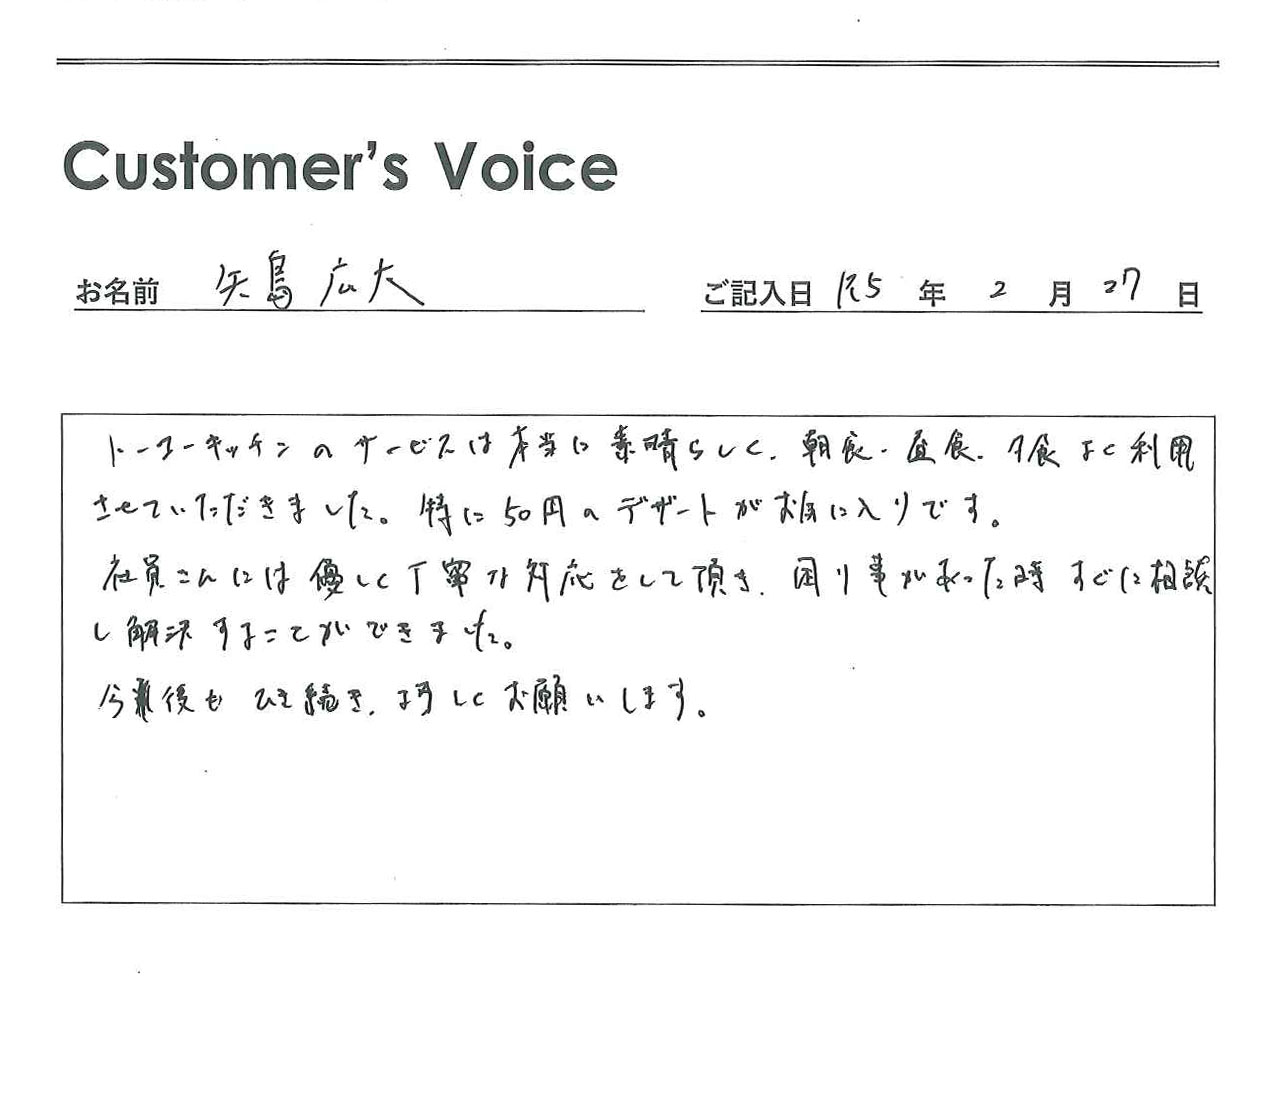 Customer's Voice
お名前 矢島 広大
ご記入日 R5 年 2 月 27 日
トーコーキッチンのサービスは本当に素晴らしく、朝食・昼食・夕食よく利用
させていただきました。特に50円のデザートがお気に入りです。
社員さんには優しく丁寧な対応をして頂き、困り事があった時すぐに相談
し解決することができました。
今後もひき続き、よろしくお願いします。